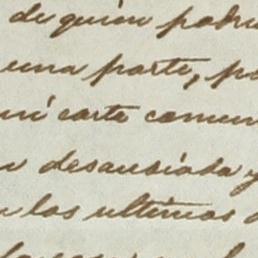 de quien padr
una parte, p
mi carta comun
desausiada y
los ultimos